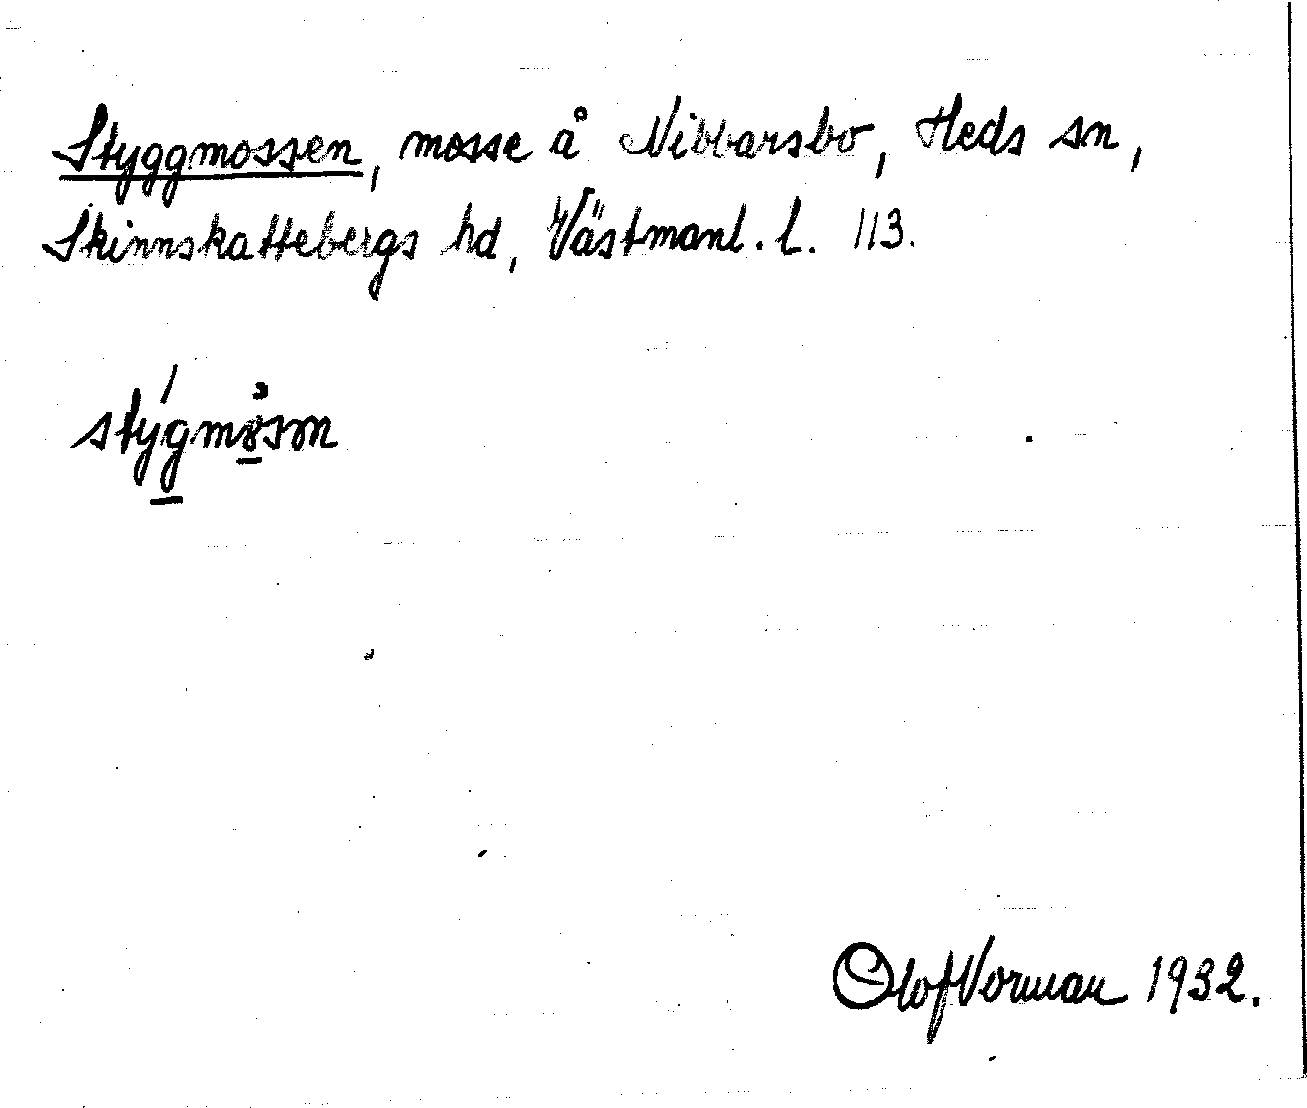 Styggmossen, mosse å Nibbarsbo, Heds sn,
Skinnskattebergs hd, Västmanl. l. 113.
Olof Vorman 1932.